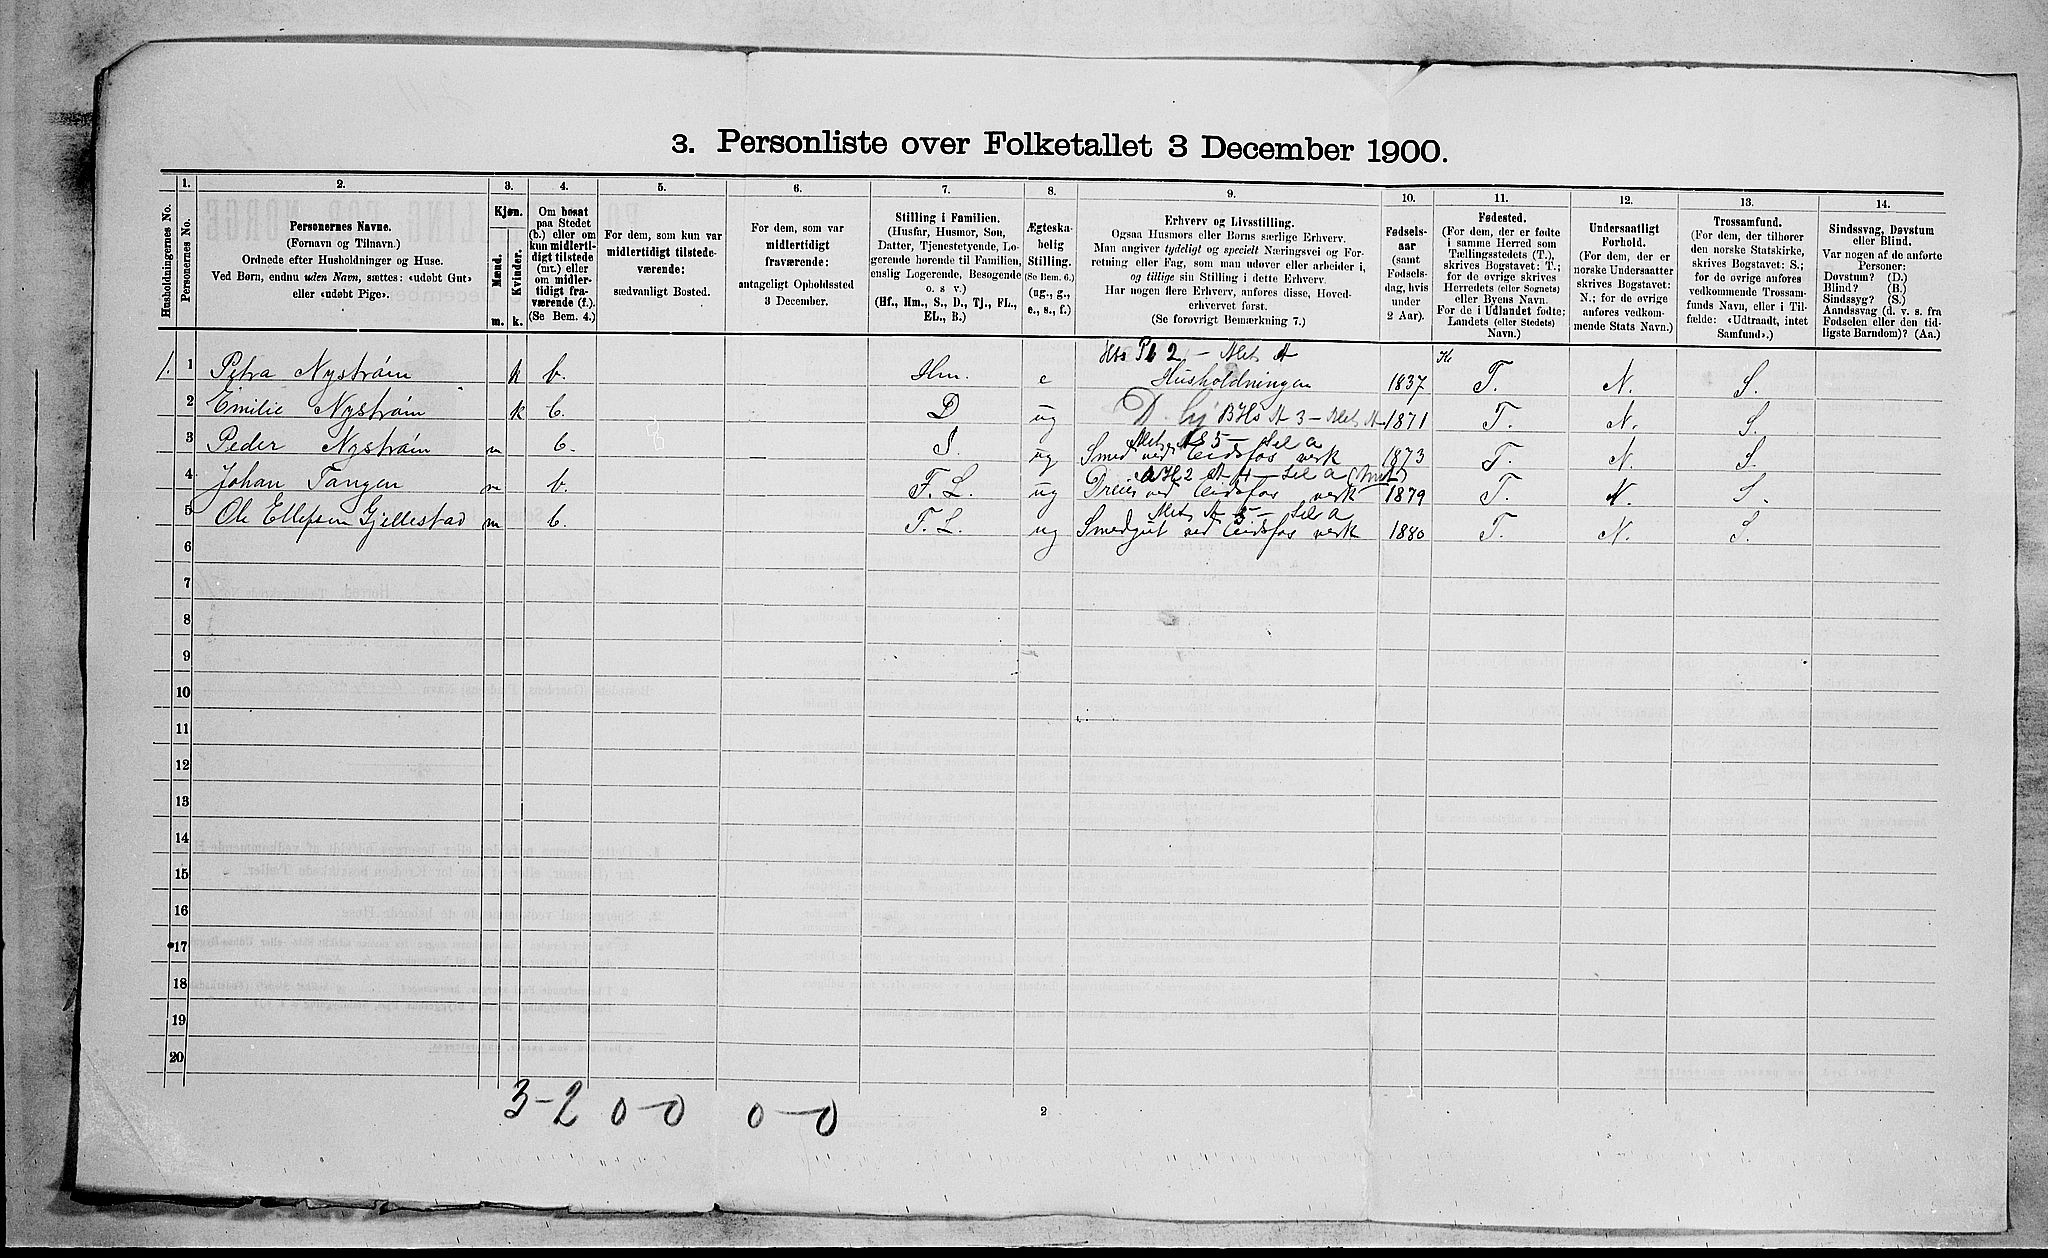 3. Personliste over Folketallet 3 December 1900.
Husholdningernes No.
1.
Personernes No.
2.
Personernes Navne.
(Fornavn og Tilnavn.)
Ordnede efter Husholdninger og Huse.
Ved Børn, endnu uden Navn, sættes: «udøbt Gut»
eller «udøbt Pige».
3.
Kjøn.
Mænd.
Kvinder.
m.
k.
4.
Om bosat
paa Stedet
(b.) eller om
kun midlerti-
digt tilstede
(mt.) eller
om midler-
tidigt fra-
værende (f.).
(Se Bem. 4.)
5.
For dem, som kun var
midlertidigt tilstede-
værende:
sædvanligt Bosted.
6.
For dem, som var
midlertidigt
fraværende:
antageligt Opholdssted
3 December.
7.
Stilling i Familien.
(Husfar, Husmor, Søn,
Datter, Tjenestetyende, Lo-
gerende hørende til Familien,
enslig Logerende, Besøgende
o. s v.)
(Hf., Hm., S., D., Tj., FL.,
EL., B.)
8.
Ægteska-
belig
Stilling.
(Se Bem. 6.)
(ug., g.,
e., s., f.)
9.
Erhverv og Livsstilling.
Ogsaa Husmors eller Børns særlige Erhverv.
Man angiver tydeligt og specielt Næringsvei og For-
retning eller Fag, som man udøver eller arbeider i,
og tillige sin Stilling i dette Erhverv.
Har nogen flere Erhverv, anføres disse, Hoved-
erhvervet først.
(Se forøvrigt Bemærkning 7.)
10.
Fødsels-
aar
(samt
Fødsels-
dag, hvis
under
2 Aar).
11.
Fødested.
(For dem, der er fødte
i samme Herred som
Tællingsstedets (T.),
skrives Bogstavet: T.;
for de øvrige skrives
Herredets (eller Sognets)
eller Byens Navn.
For de i Udlandet fødte:
Landets (eller Stedets)
Navn.)
12.
Undersaatligt
Forhold.
(For dem, der er
norske Undersaatter
skrives Bogstavet:
N.; for de øvrige
anføres vedkom-
mende Stats Navn.)
13.
Trossamfund.
(For dem, der tilhører
den norske Statskirke,
skrives Bogstavet: S.;
for de øvrige anføres
vedkommende Trossam-
funds Navn, eller i Til-
fælde: «Udtraadt, intet
Samfund».)
14.
Sindssvag, Døvstum
eller Blind.
Var nogen af de anførte
Personer:
Døvstum? (D.)
Blind? (B.)
Sindssyg? (S.)
Aandssvag (d. v. s. fra
Fødselen eller den tid-
ligste Barndom)? (Aa.)
2 - A
1. 1 Petra Nystrøm k b. Hm. e Husholdningen 1837 T. N. S.
2 Emilie Nystrøm k b. D ug 1871 T. N. S.
3 Peder Nystrøm m b. S. ug Smed ved Eidsfos verk 1873 T. N. S.
4 Johan Tangen m b. F. L. ug Dreier ved Eidsfos verk 1879 T. N. S.
5 Ole Ellefsen Gjellestad m b. F. L. ug Smedgut ved Eidsfos verk 1880 T. N. S.
6
7
8
9
10
11
12
13
14
15
16
17
18
19
20
3-2 0-0 0-0
2